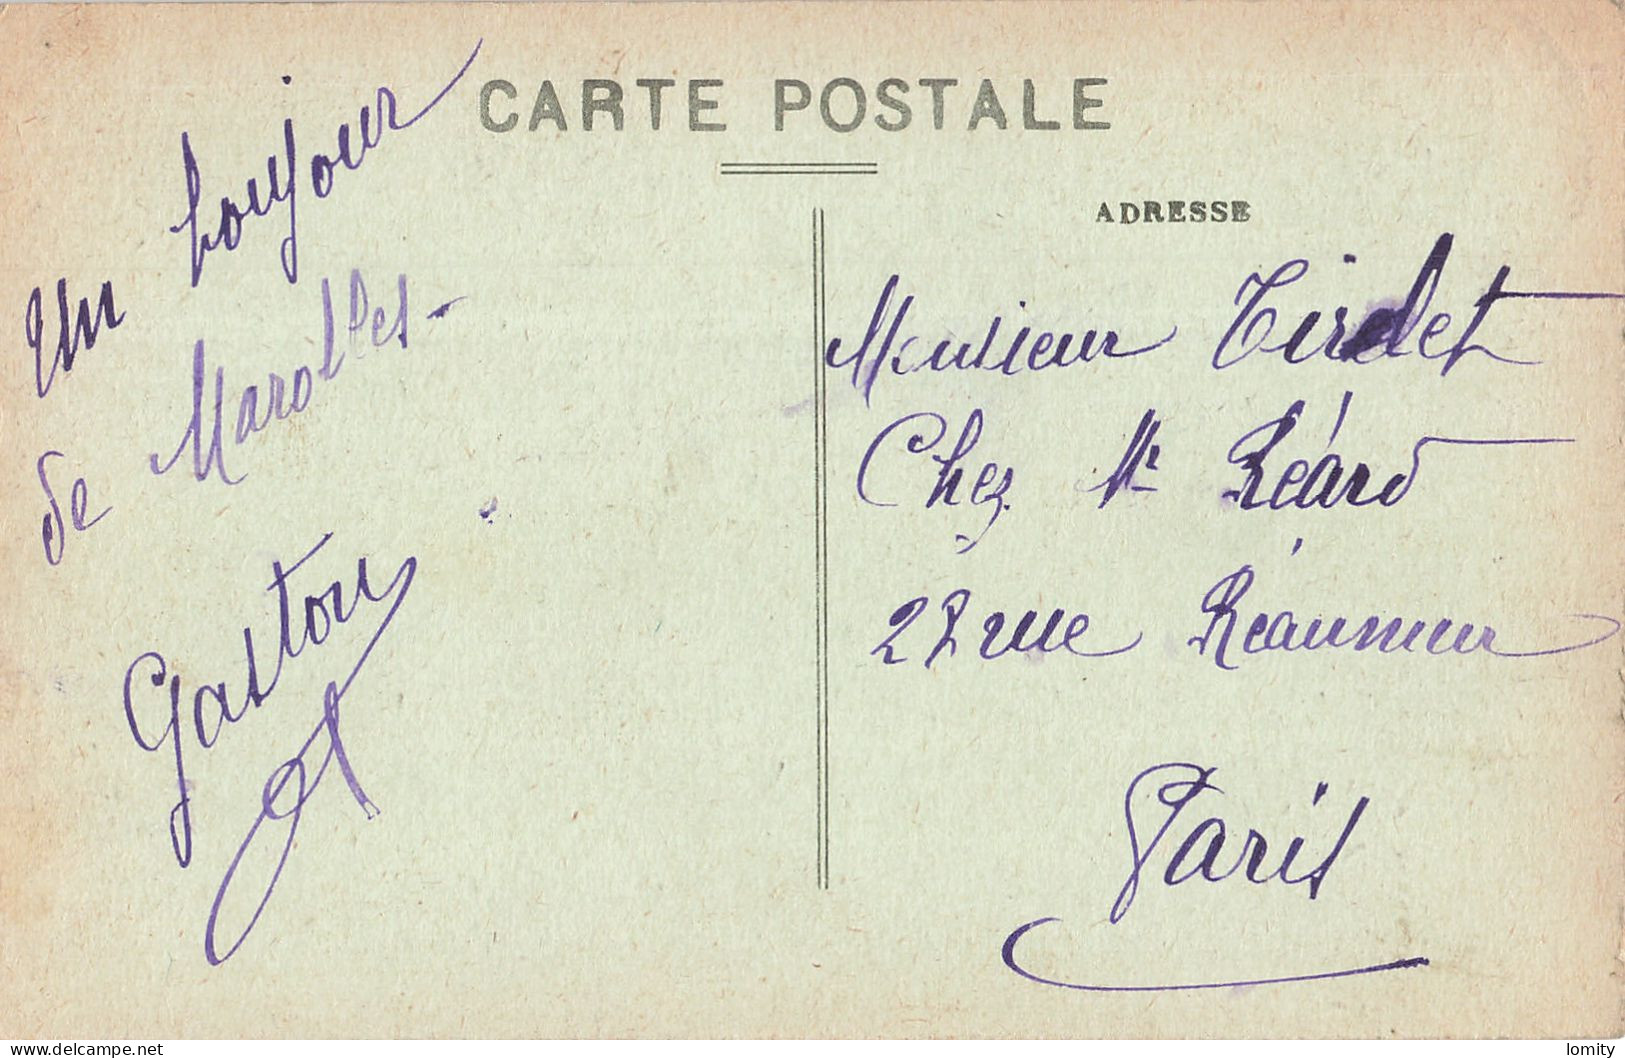 CARTE POSTALE
Un bonjour
de Marolles -
Gaston
ADRESSE
Monsieur
Chez Mr Réard
rue Réaumur
Paris
delcampe.net
lomity